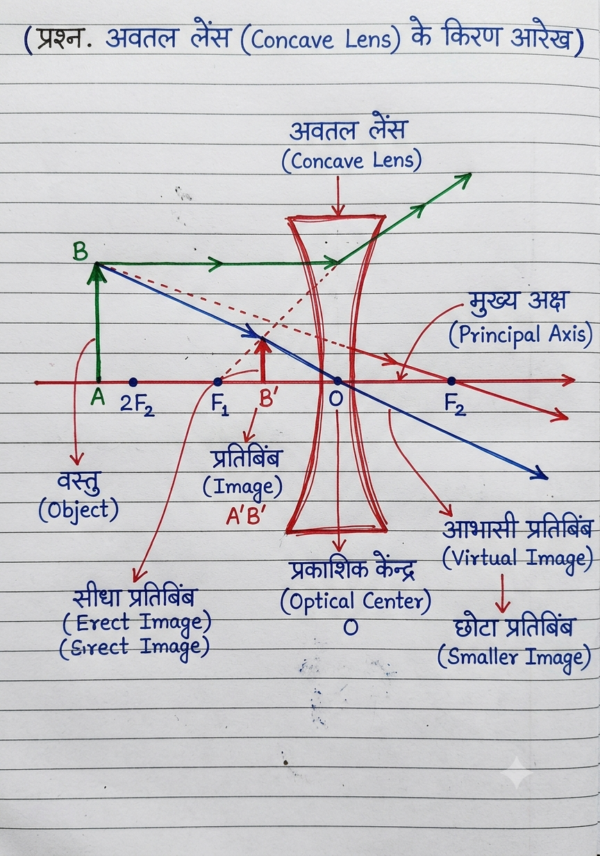 (प्रश्न. अवतल लेंस (Concave Lens) के किरण आरेख)
अवतल लेंस
(Concave Lens)
B
मुख्य अक्ष
(Principal Axis)
A
2F₂
F₁
B'
O
F₂
वस्तु
(Object)
प्रतिबिंब
(Image)
A'B'
आभासी प्रतिबिंब
(Virtual Image)
प्रकाशिक केंन्द्र
(Optical Center)
O
सीधा प्रतिबिंब
(Erect Image)
(Sirect Image)
छोटा प्रतिबिंब
(Smaller Image)